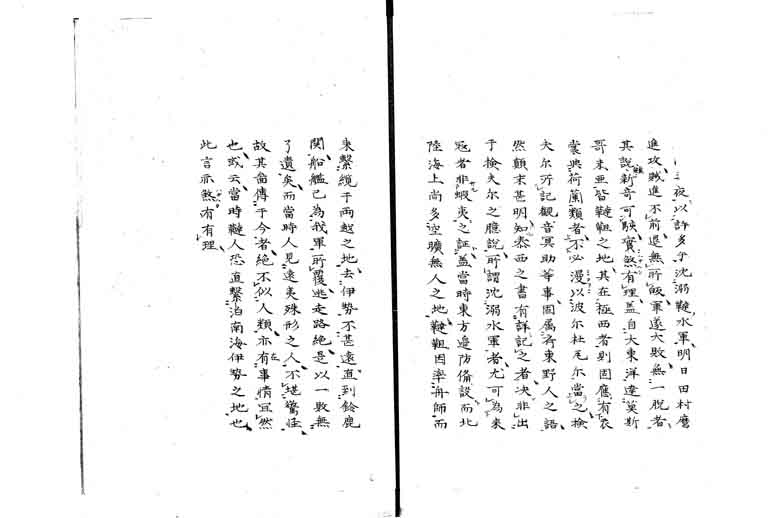 夜以許多手沈溺韃水軍明日田村麿
進攻賊進不前退無所皈軍遂大敗無一脫者
其說新奇可駭實煞有理蓋自大東洋達莫斯
哥未亜皆韃靼之地其在極西者則固應有衣
裳與荷蘭類者不必漫以波尓杜瓦尓當之檢
夫尓所記觀音冥助等事固属齊東野人之語
然顛末甚明知泰西之書有詳記之者决非出
于檢夫尓之臆說所謂沈溺水軍者尤可為來
寇者非蝦夷之証蓋當時東方邉防備設而北
陸海上尚多空曠無人之地韃靼因率舟師而
來繫纜于兩越之地去伊勢不甚遠直到鈴鹿
関船艦已為我軍所覆逃走路絶是以一敗無
了遺矣而當時人見遠夷殊形之人不堪驚怪
故其畫傳于今者絶不似人類亦有事情宜然
也或云當時韃人恐直繫泊南海伊勢之地也
此言亦煞有有理